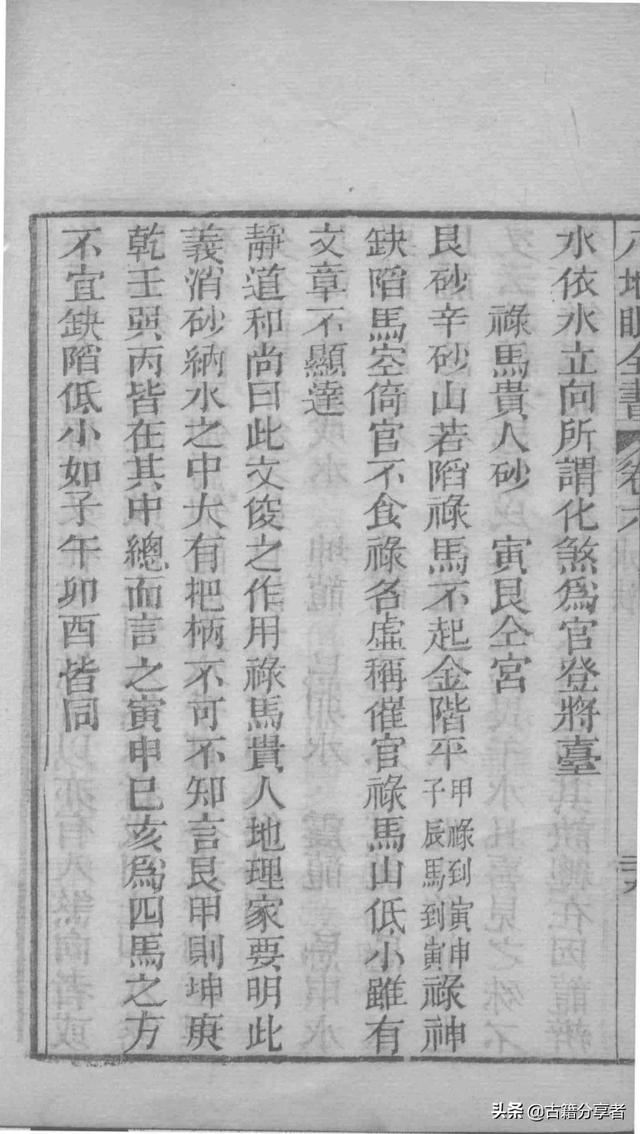 八地眼全書 卷六
水依水立向所謂化煞爲官登將臺
祿馬貴人砂 寅艮仝宮
艮砂辛砂山若陷祿馬不起金階平甲祿到寅申子辰馬到寅祿神
缺陷馬空倚官不食祿名虛稱催官祿馬山低小雖有
文章不顯達
靜道和尚曰此文俊之作用祿馬貴人地理家要明此
義消砂納水之中大有把柄不可不知言艮甲則坤庚
乾壬巽丙皆在其中總而言之寅申巳亥爲四馬之方
不宜缺陷低小如子午卯酉皆同
头条 @古籍分享者